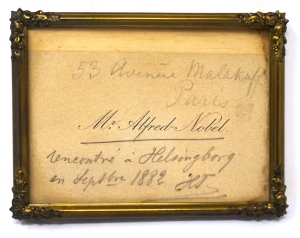 53 Avenue Malakoff
Paris
Mr Alfred Nobel.
rencontré à Helsingborg
en Septbre 1882 HT